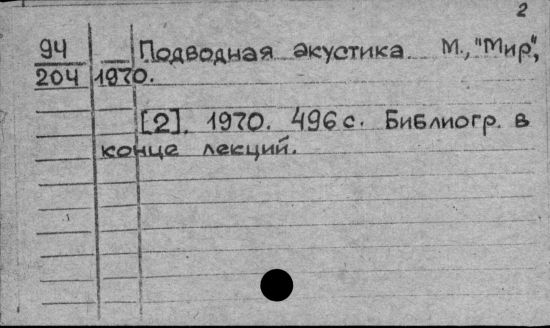 2
94 Подводная акустика. М., "Мир",
204 1970.
[2]. 1970. 496 с. Библиогр. в
конце лекций.